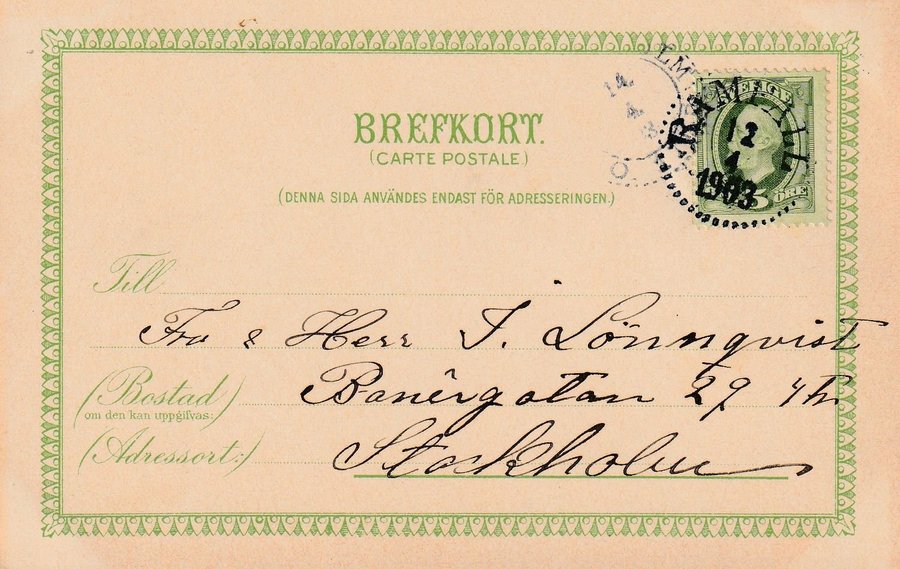 BREFKORT.
(CARTE POSTALE)
(DENNA SIDA ANVÄNDES ENDAST FÖR ADRESSERINGEN.)
SVERIGE
5 ÖRE
RAMHÄLL
12
4
1903
14
4
Till
Fru & Herr J. Lönnqvist
(Bostad)
om den kan uppgifvas:
Banérgatan 29 4 tr
(Adressort:)
Stockholm